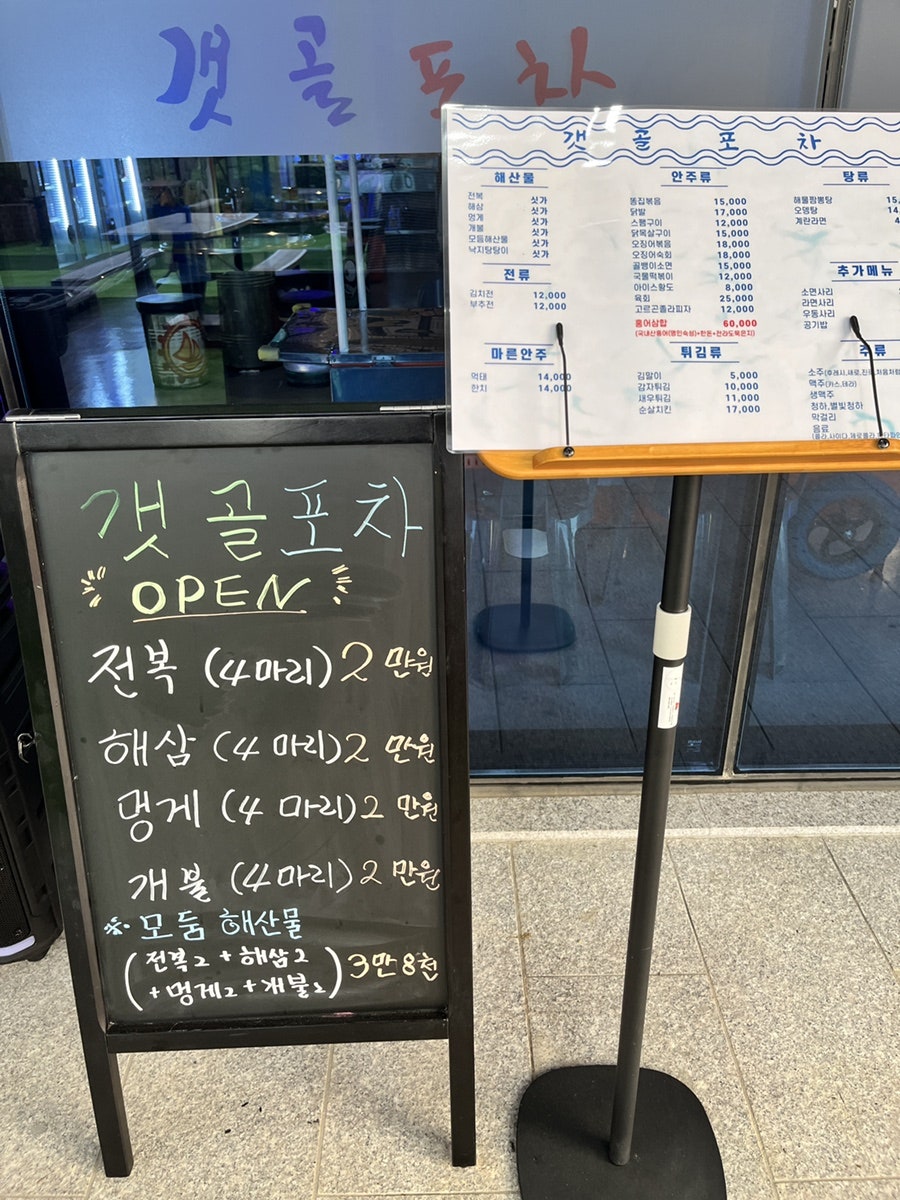 갯골포차
갯골포차
해산물
전복 싯가
해삼 싯가
멍게 싯가
개불 싯가
모듬해산물 싯가
낙지탕탕이 싯가
전류
김치전 12,000
부추전 12,000
마른안주
먹태 14,000
한치 14,000
안주류
똥집볶음 15,000
닭발 17,000
스팸구이 12,000
닭목살구이 15,000
오징어볶음 18,000
오징어숙회 18,000
골뱅이소면 15,000
국물떡볶이 12,000
아이스황도 8,000
육회 25,000
고르곤졸라피자 12,000
홍어삼합 60,000
(국내산홍어(명인숙성)+한돈+전라도묵은지)
튀김류
김말이 5,000
감자튀김 10,000
새우튀김 11,000
순살치킨 17,000
탕류
해물짬뽕탕
오뎅탕
계란라면
추가메뉴
소면사리
라면사리
우동사리
공기밥
주류
맥주(카스,테라)
생맥주
청하,별빛청하
막걸리
음료
갯골포차
OPEN
전복 (4마리) 2만원
해삼 (4마리) 2만원
멍게 (4마리) 2만원
개불 (4마리) 2만원
※ 모둠 해산물
(전복2 + 해삼2
+ 멍게2 + 개불2) 3만8천